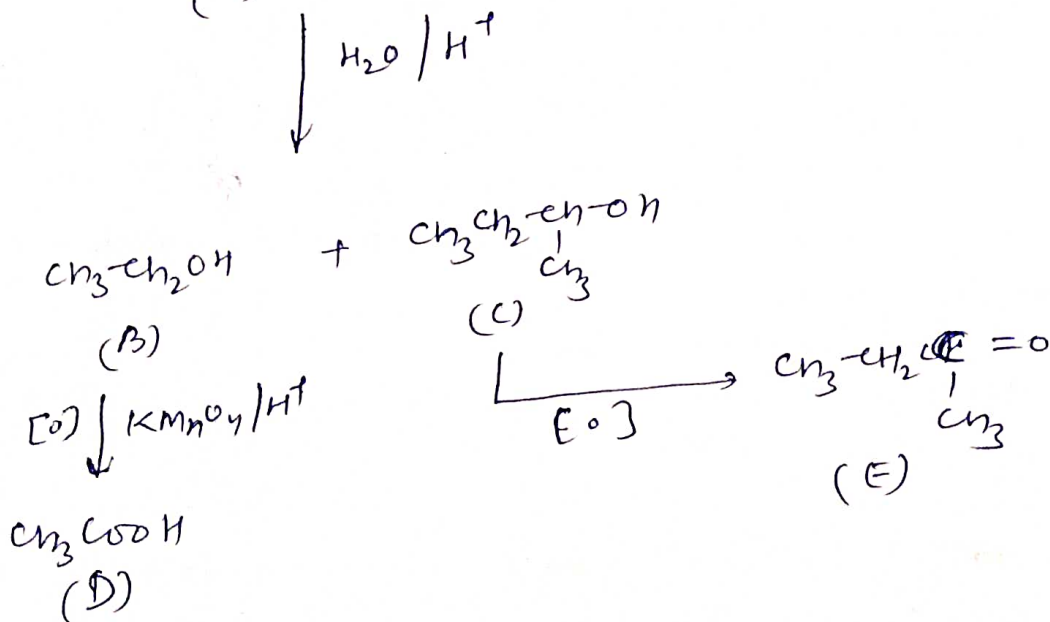 H₂O / H⁺
CH₃-CH₂OH + CH₃CH₂-CH-OH
CH₃
(B) (C)
[O] KMnO₄/H⁺ [O] CH₃-CH₂-C=O
CH₃
(E)
CH₃COOH
(D)